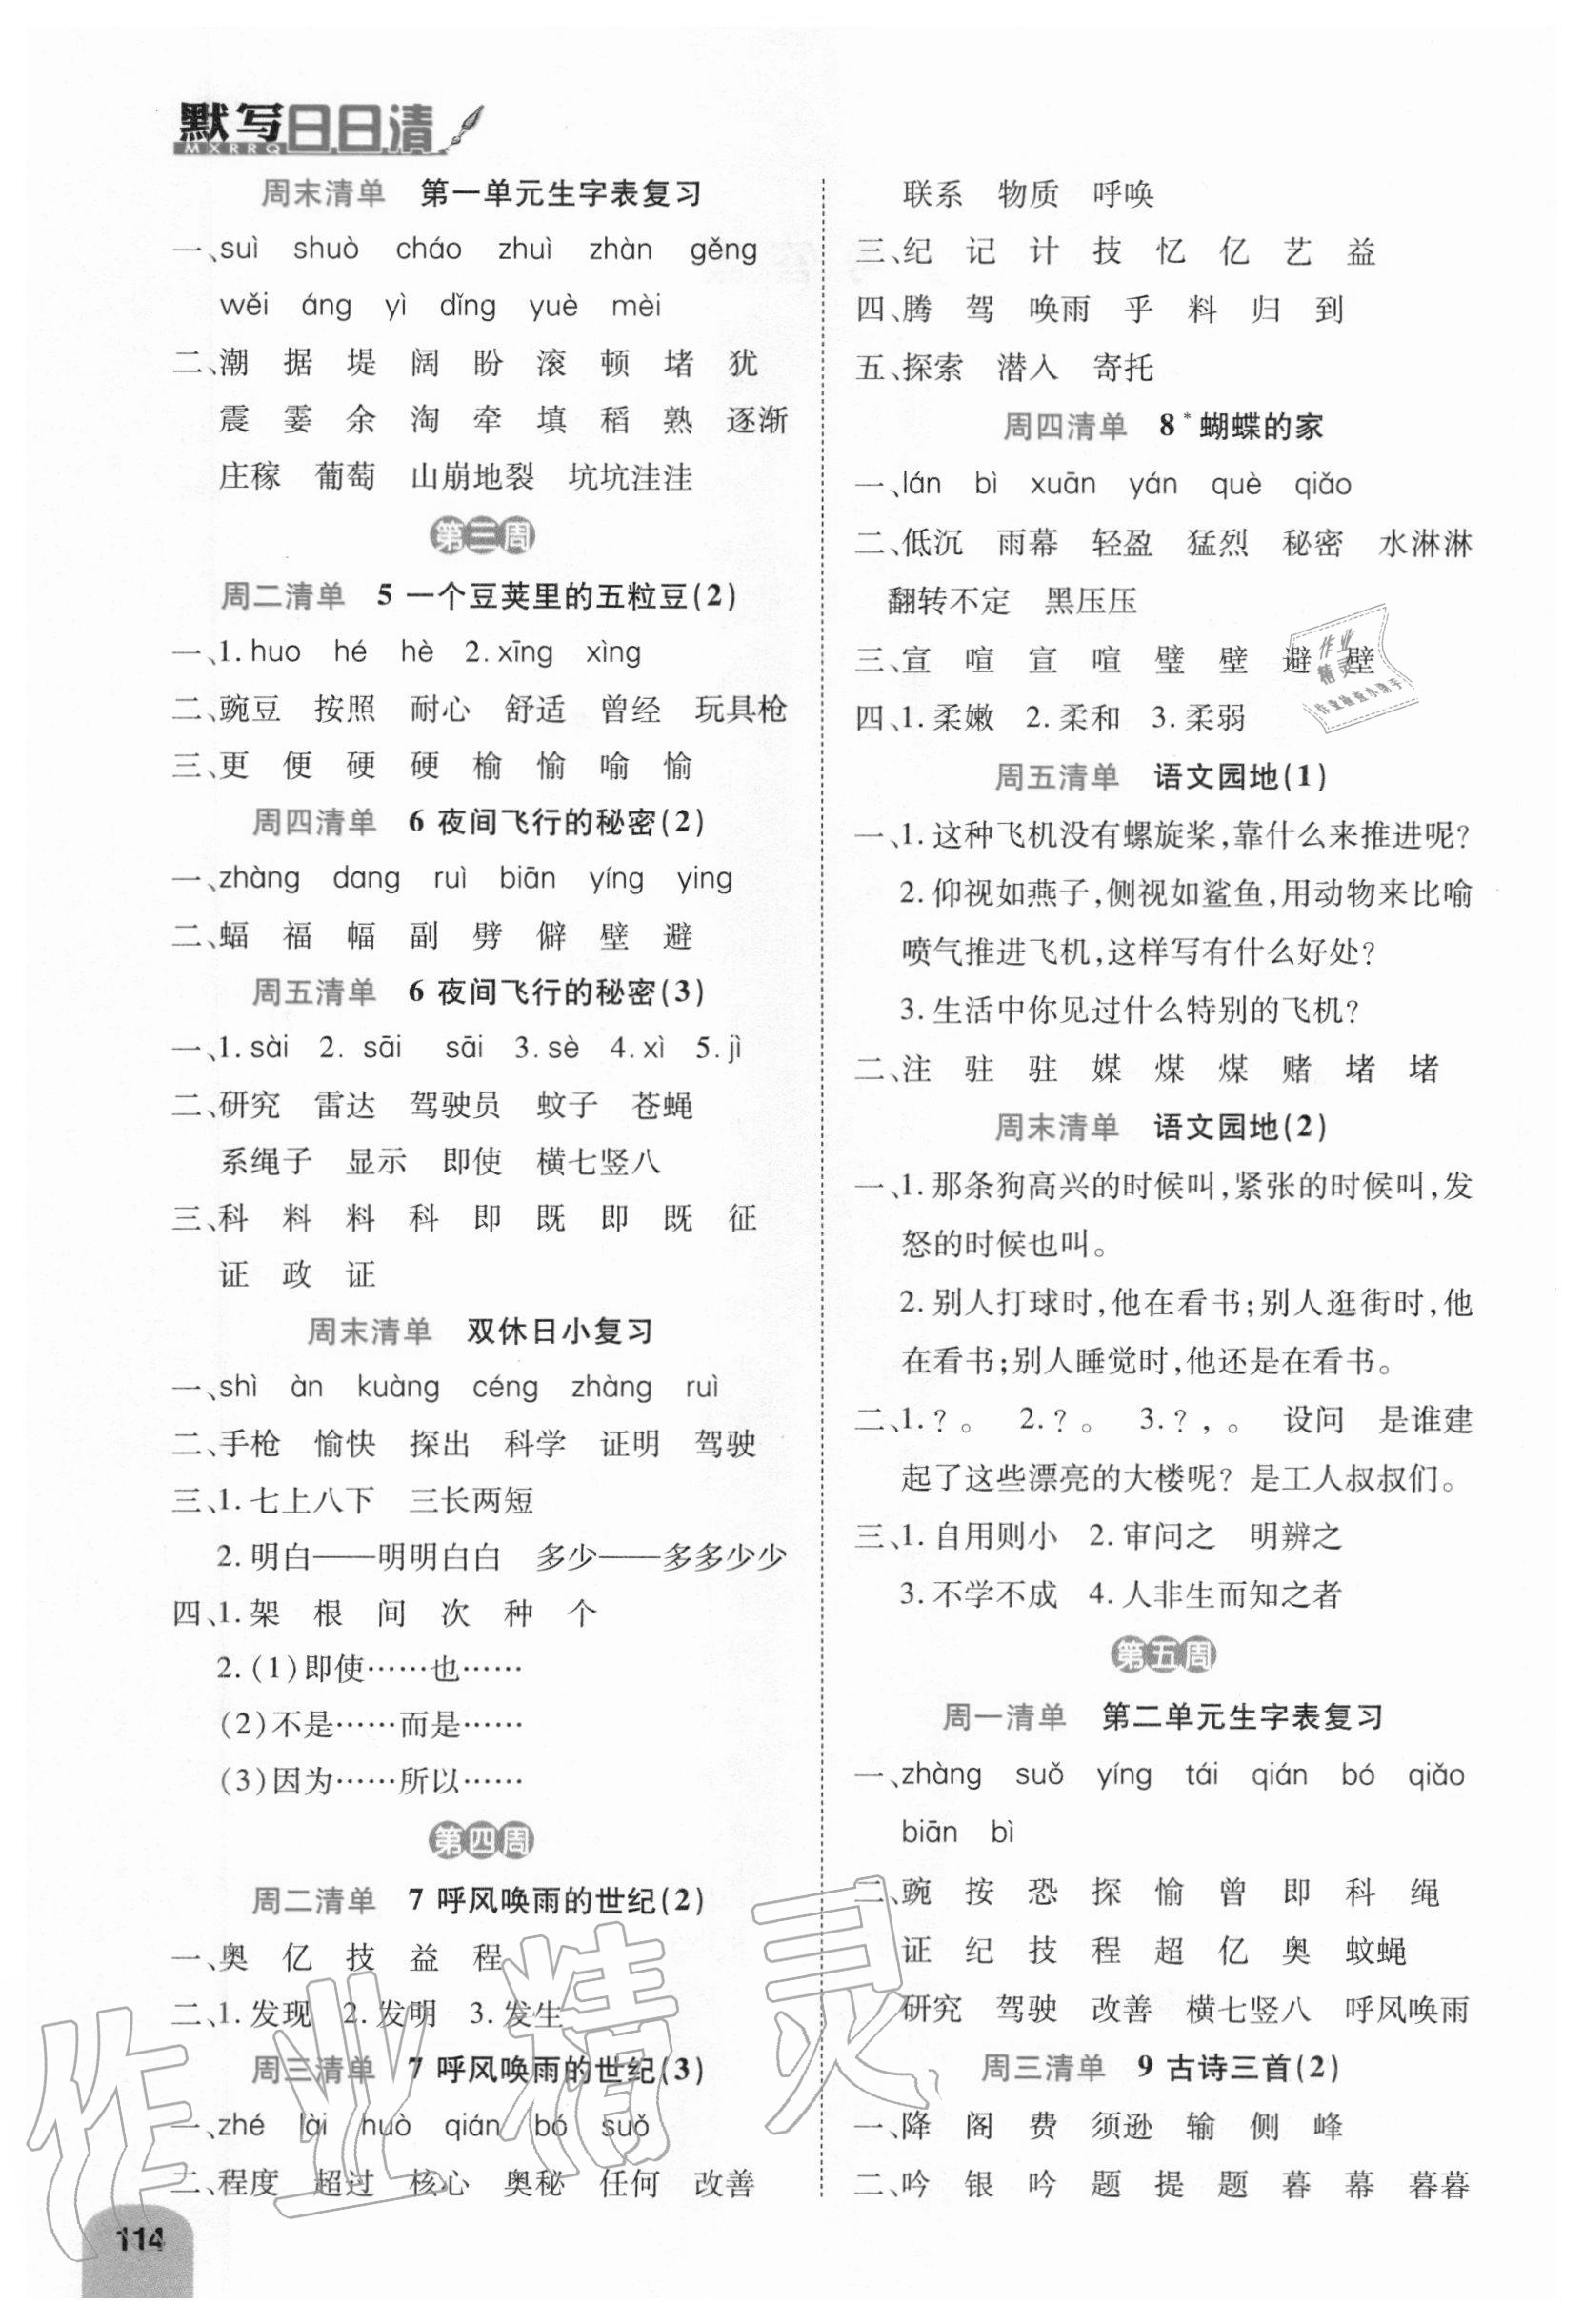 默写日日清
MXRRQ
周末清单 第一单元生字表复习
一、suì shuò cháo zhuì zhàn gěng
wěi áng yì dǐng yuè mèi
二、潮 据 堤 阔 盼 滚 顿 堵 犹
震 霎 余 淘 牵 填 稻 熟 逐渐
庄稼 葡萄 山崩地裂 坑坑洼洼
第三周
周二清单 5 一个豆荚里的五粒豆(2)
一、1. huo hé hè 2. xīng xìng
二、豌豆 按照 耐心 舒适 曾经 玩具枪
三、更 便 硬 硬 榆 愉 喻 愉
周四清单 6 夜间飞行的秘密(2)
一、zhàng dang ruì biān yíng ying
二、蝠 福 幅 副 劈 僻 壁 避
周五清单 6 夜间飞行的秘密(3)
一、1. sài 2. sāi sāi 3. sè 4. xì 5. jì
二、研究 雷达 驾驶员 蚊子 苍蝇
系绳子 显示 即使 横七竖八
三、科 料 料 科 即 既 即 既 征
证 政 证
周末清单 双休日小复习
一、shì àn kuàng céng zhàng ruì
二、手枪 愉快 探出 科学 证明 驾驶
三、1. 七上八下 三长两短
2. 明白——明明白白 多少——多多少少
四、1. 架 根 间 次 种 个
2. (1)即使……也……
(2)不是……而是……
(3)因为……所以……
第四周
周二清单 7 呼风唤雨的世纪(2)
一、奥 亿 技 益 程
二、1. 发现 2. 发明 3. 发生
周三清单 7 呼风唤雨的世纪(3)
一、zhé lài huò qián bó suǒ
二、程度 超过 核心 奥秘 任何 改善
114
联系 物质 呼唤
三、纪 记 计 技 忆 亿 艺 益
四、腾 驾 唤雨 乎 料 归 到
五、探索 潜入 寄托
周四清单 8* 蝴蝶的家
一、lán bì xuān yán què qiǎo
二、低沉 雨幕 轻盈 猛烈 秘密 水淋淋
翻转不定 黑压压
三、宣 喧 宣 喧 璧 壁 避 壁
四、1. 柔嫩 2. 柔和 3. 柔弱
周五清单 语文园地(1)
一、1. 这种飞机没有螺旋桨,靠什么来推进呢?
2. 仰视如燕子,侧视如鲨鱼,用动物来比喻
喷气推进飞机,这样写有什么好处?
3. 生活中你见过什么特别的飞机?
二、注 驻 驻 媒 煤 煤 赌 堵 堵
周末清单 语文园地(2)
一、1. 那条狗高兴的时候叫,紧张的时候叫,发
怒的时候也叫。
2. 别人打球时,他在看书;别人逛街时,他
在看书;别人睡觉时,他还是在看书。
二、1. ? 。 2. ? 。 3. ? , 。 设问 是谁建
起了这些漂亮的大楼呢? 是工人叔叔们。
三、1. 自用则小 2. 审问之 明辨之
3. 不学不成 4. 人非生而知之者
第五周
周一清单 第二单元生字表复习
一、zhàng suǒ yíng tái qián bó qiǎo
biān bì
二、豌 按 恐 探 愉 曾 即 科 绳
证 纪 技 程 超 亿 奥 蚊蝇
研究 驾驶 改善 横七竖八 呼风唤雨
周三清单 9 古诗三首(2)
一、降 阁 费 须逊 输 侧 峰
二、吟 银 吟 题 提 题 暮 幕 暮暮
作业精灵
作业
精灵